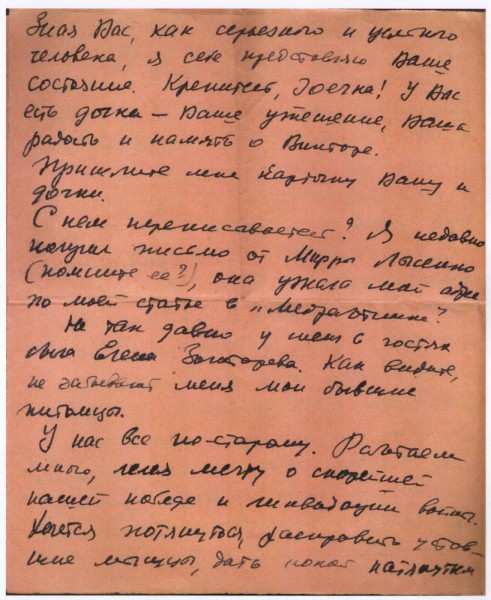 Зная Вас, как серьезного и умного
человека, я себе представляю Ваше
состояние. Крепитесь, Зоечка! У Вас
есть дочка – Ваше утешение, Ваша
радость и память о Викторе.
Пришлите мне карточку Вашу и
дочки.
С кем переписываетесь? Я недавно
получил письмо от Мирры Лысенко
(помните ее?), она узнала мой адрес
по моей статье в „
Не так давно у меня в гостях
была Елена Как видите,
не забывают меня мои бывшие
питомцы.
У нас все по-старому. Работаем
много, мечту о скорейшей
нашей победе и ликвидации войны.
Хочется потянуться, расправить устав-
шие мышцы, дать покой натянутым